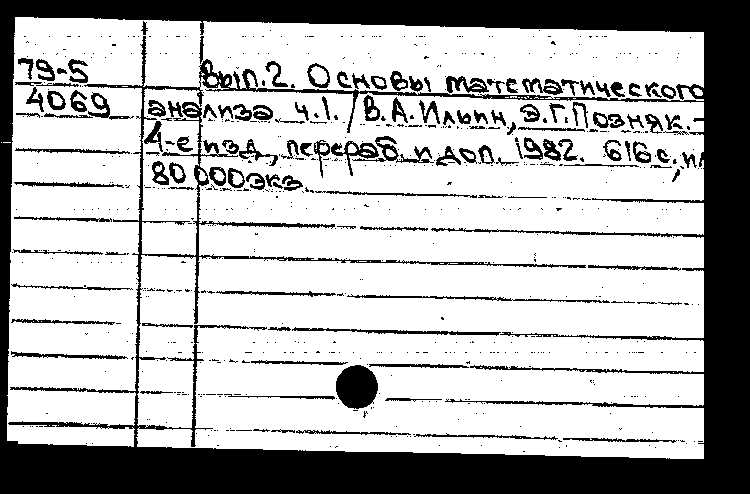 79-5 Вып.2. Основы математического
4069 анализа ч.1. / В.А.Ильин, Э.Г.Позняк.-
4-е изд., перераб. и доп. 1982. 616 с., ил
80 000 экз.